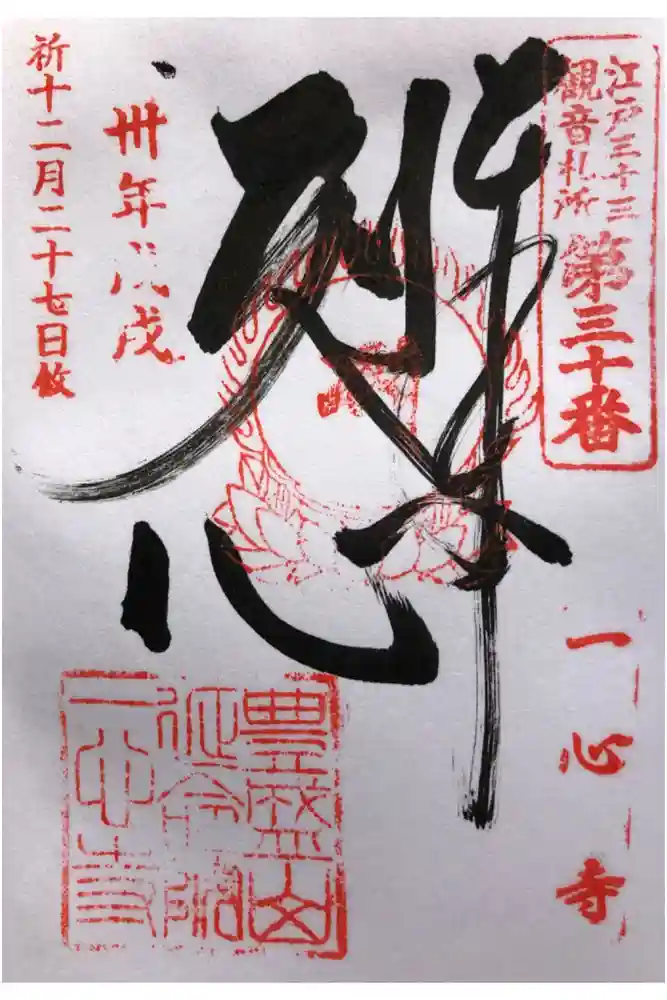 江戸三十三
観音札所
第三十番
一心寺
卅年戊戌
祈十二月二十七日攸
豊盛山
延命院
一心寺